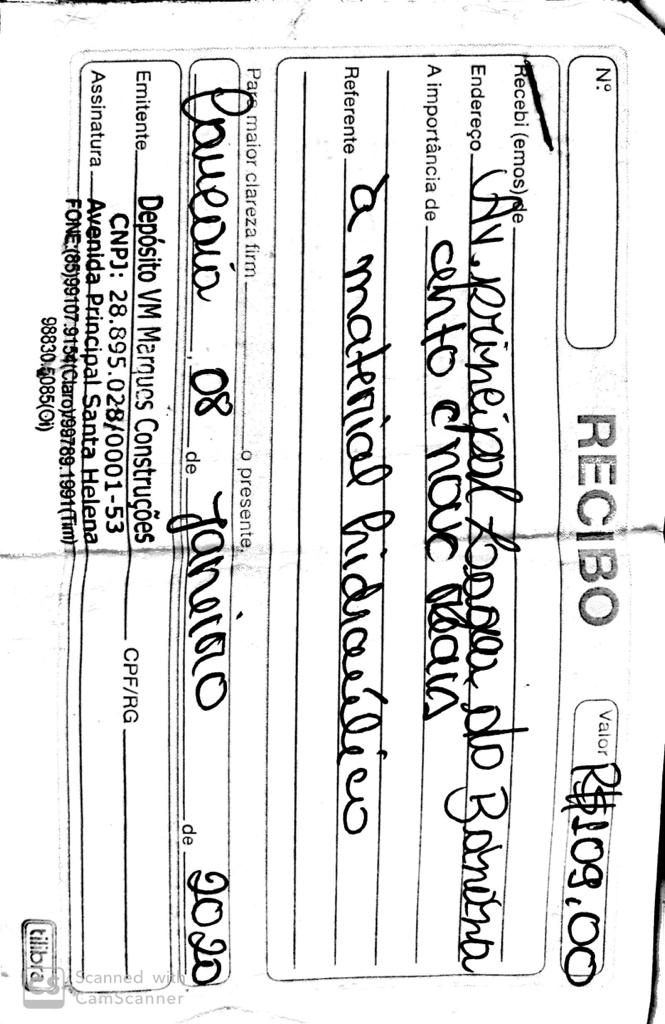 Nº
RECIBO
Valor R$109,00
Recebi (emos) de
Endereço Av. principal Lagoa do Banana
A importância de cento e nove reais
Referente à material hidraúlico
Para maior clareza firm o presente.
Caucaia, 08 de Janeiro de 2020
Emitente Depósito VM Marques Construções
CNPJ: 28.895.028/0001-53
CPF/RG
Assinatura Avenida Principal Santa Helena
FONE:(85)99107.9154(Claro)/99789.1991(Tim)
98830.5085(Oi)
tilibra
CS Scanned with
CamScanner